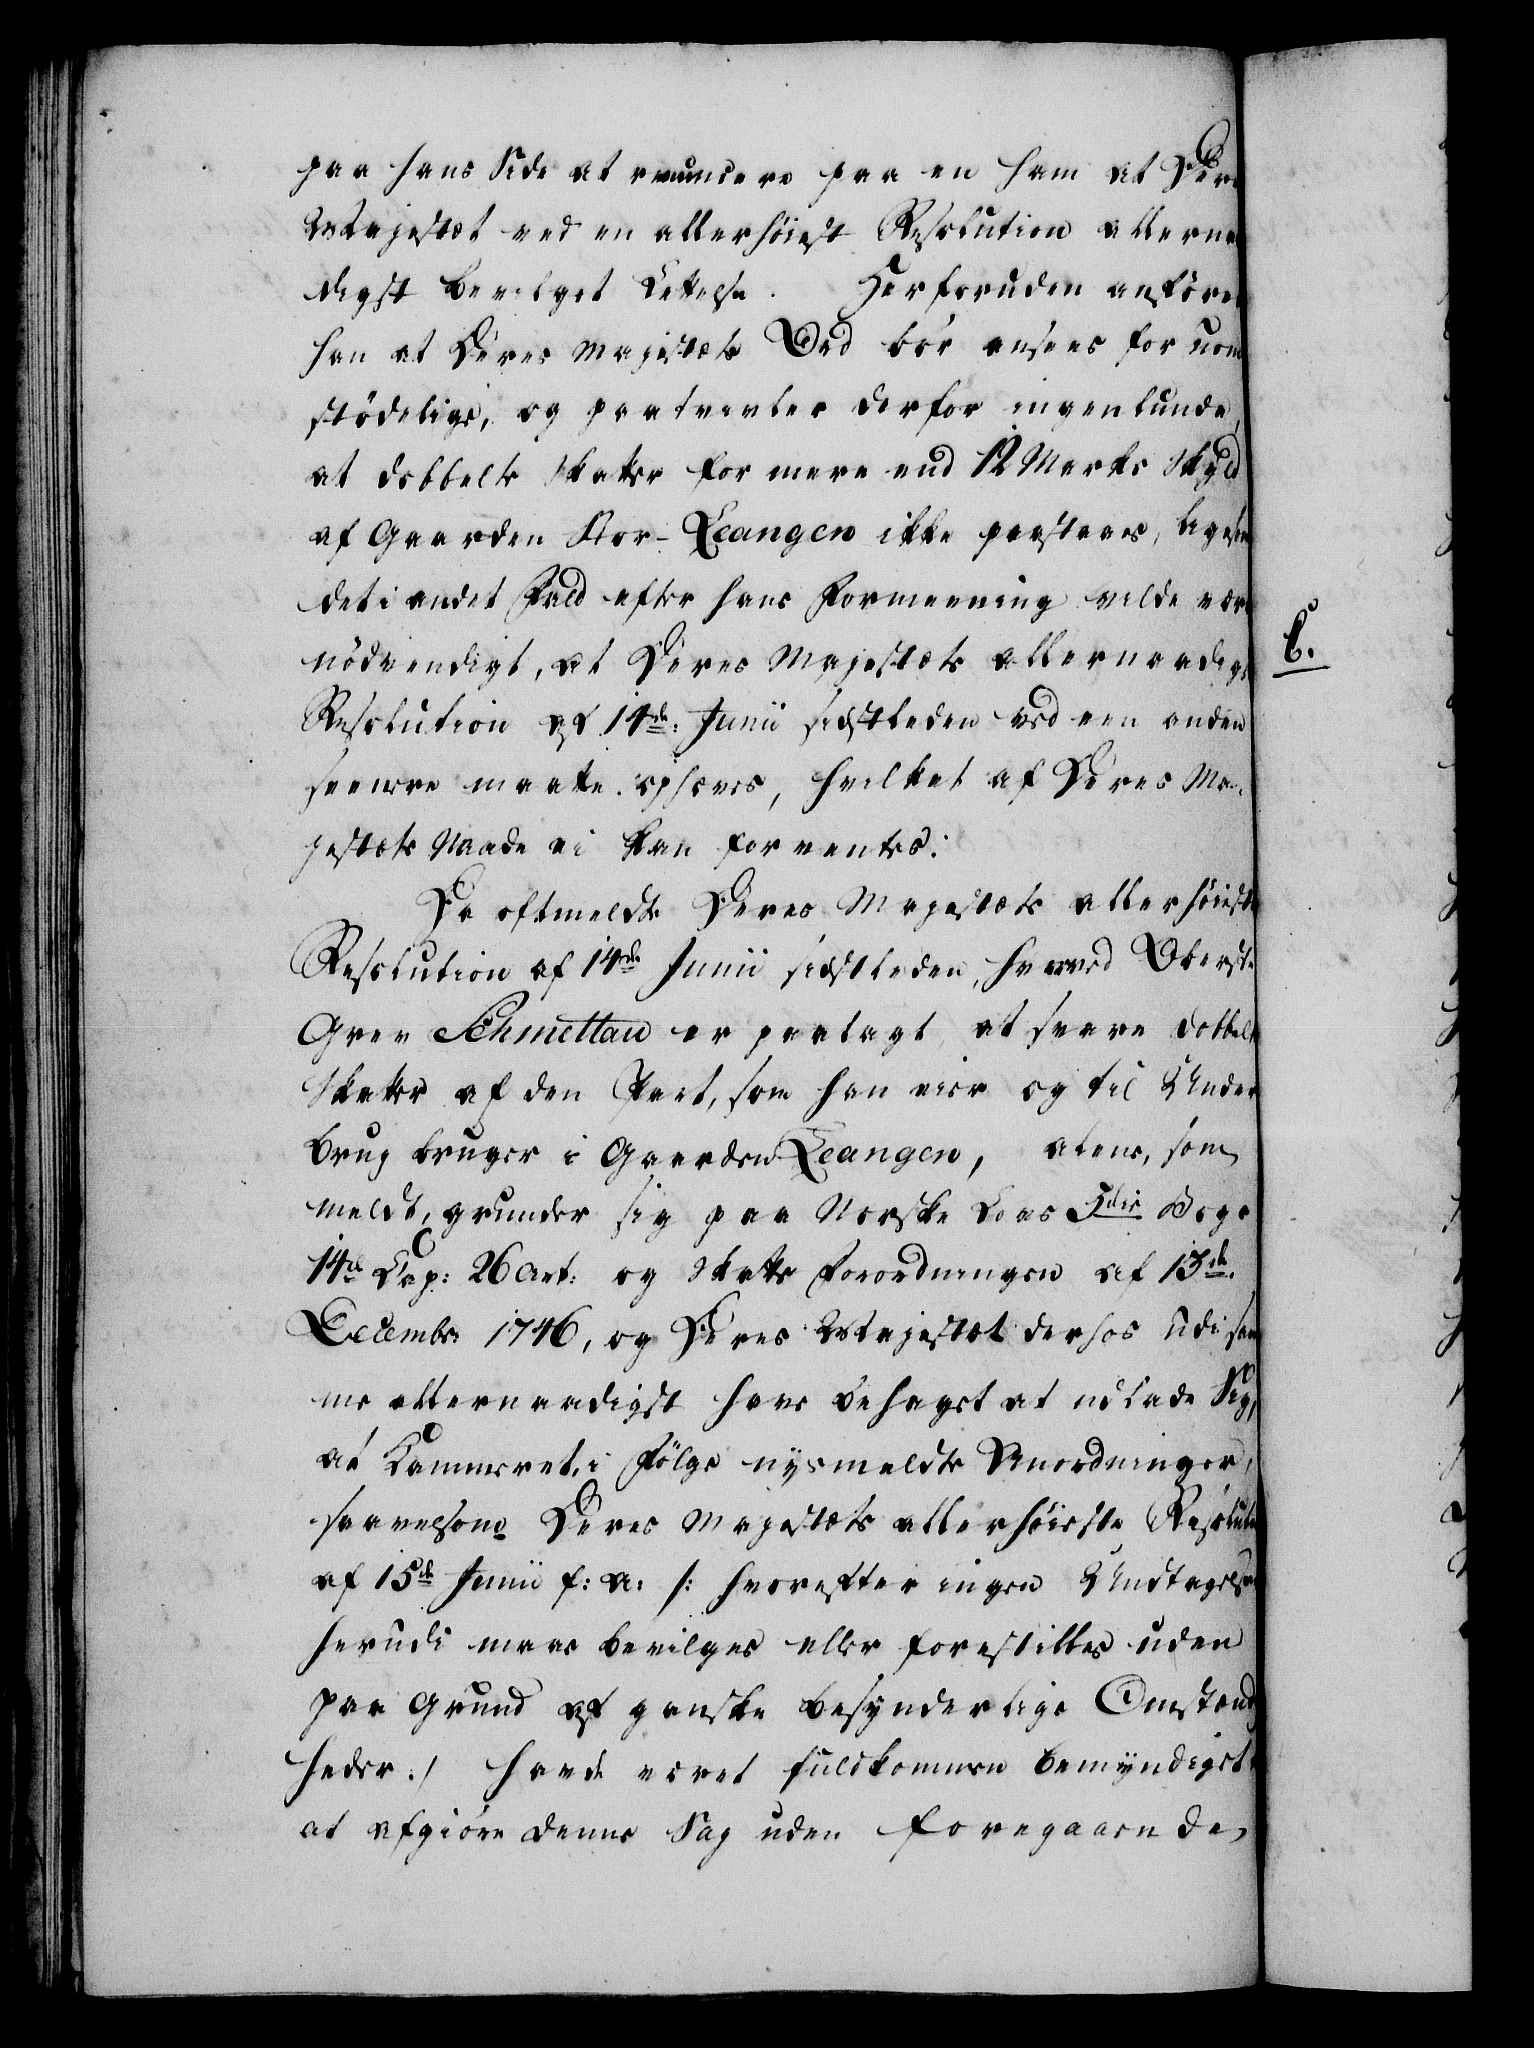 paa hans Side at reumere paa en ham at Dere
Majestæt ved en allerhöiest Resolution allerna
digst bevilget Lettelse. Herforuden anfører
han at Deres Majestæts Ord bör ansees for uom
stödelige, og paatvivler derfor ingenlunde,
at dobbelte Skatter for mere end 12 Marks Skyld
af Gaarden Stor-Leangen ikke paastaaes, ligesom
det i andet Fald efter hans Formeening vilde være
nödvendigt, at Deres Majestæts allernaadigst
Resolution af 14de Junii sidstleden ved een anden
seenere maatte ophæves, hvilket af Deres Ma-
jestæts Naade ei kan forventes.
Da oftmeldte Deres Majestæts allerhöieste
Resolution af 14de Junii sidstleden, hvorved Oberste
Grev Schmettau er paalagt at svare dobbelt
Skatter af den Part, som han eier og til Under
brug bruger i Gaarden Leangen, alene, som
meldt, grunder sig paa Norske Lovs 3die Bogs
14de Cap: 26 Art: og Skatte Forordningen af 13de
Decembr: 1746, og Deres Majestæt derhos udi sam
me allernaadigst have behaget at udlade Sig,
at Cammeret, i Fölge nysmeldte Anordninger,
saavelsom Deres Majestæts allerhöieste Resolution
af 15de Junii f: A: /: hvorefter ingen Undtagelse
herudi maae bevilges eller forestilles uden
paa Grund af ganske besynderlige Omstænd
heder :/ havde været fuldkommen bemyndiget
at afgiöre denne Sag uden foregaaende
C.